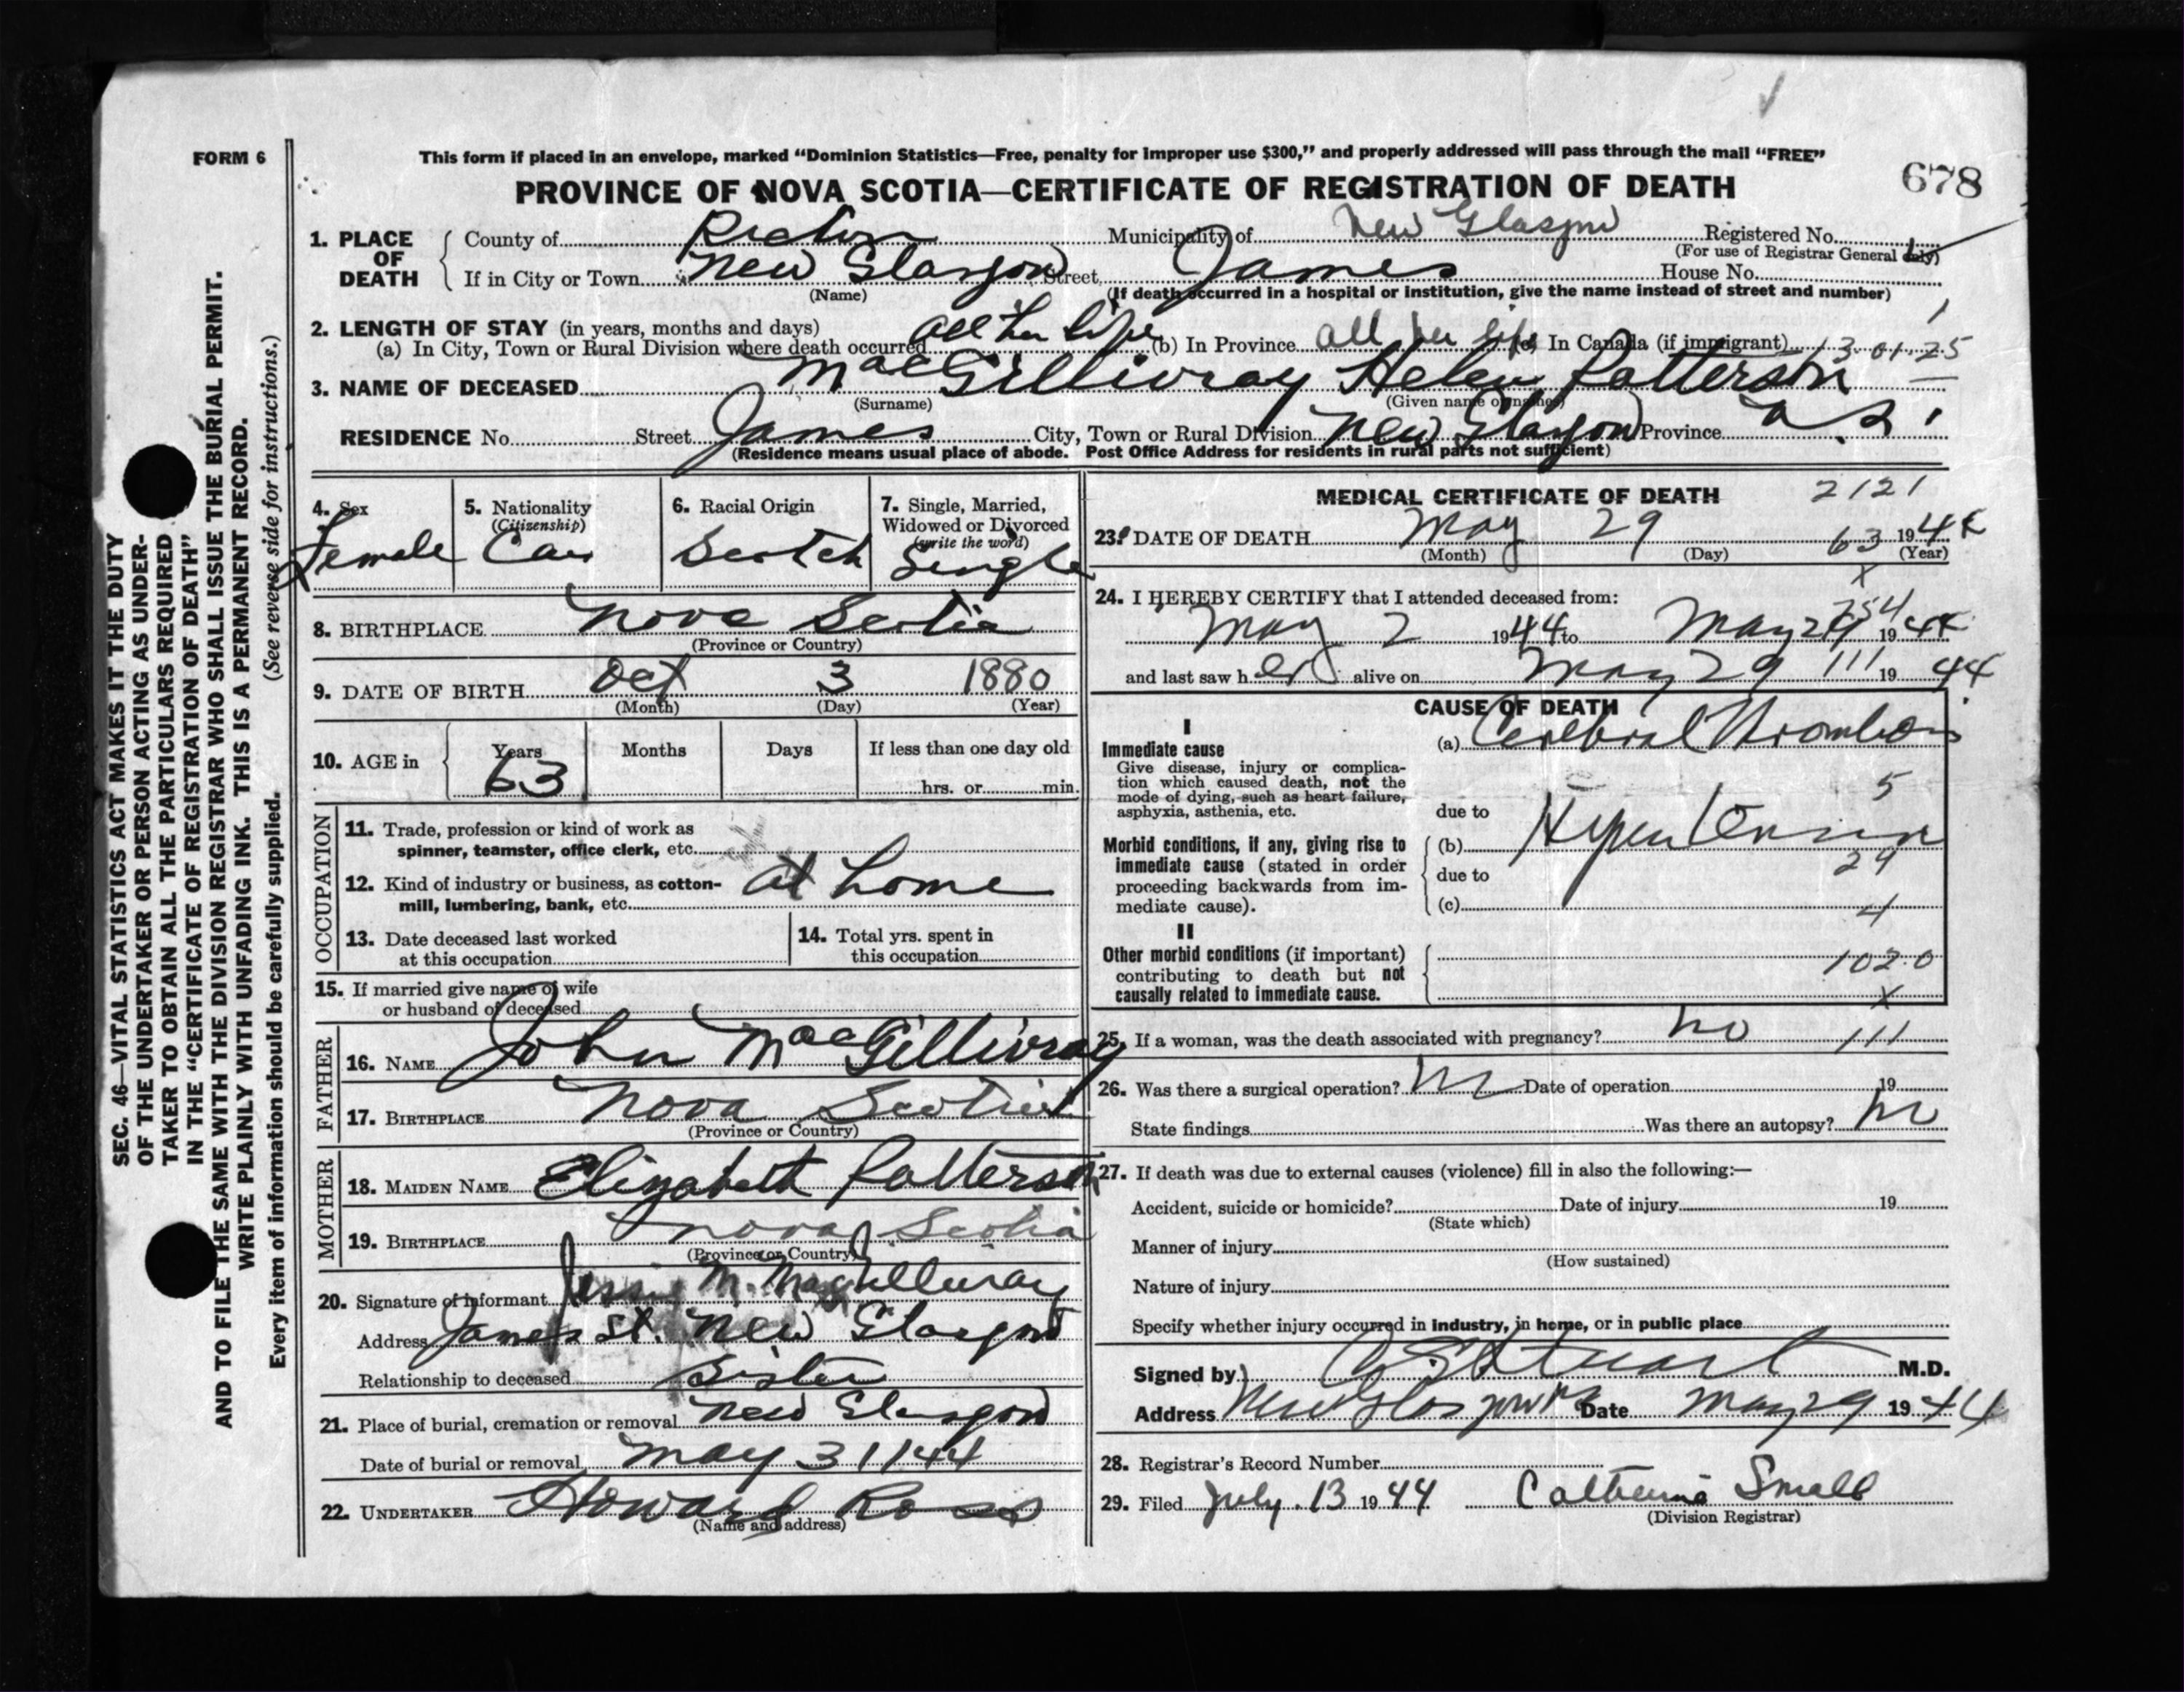 FORM 6
This form if placed in an envelope, marked “Dominion Statistics—Free, penalty for improper use $300,” and properly addressed will pass through the mail “FREE”
PROVINCE OF NOVA SCOTIA—CERTIFICATE OF REGISTRATION OF DEATH
678
1. PLACE OF DEATH
County of Pictou Municipality of New Glasgow Registered No.
(For use of Registrar General only)
If in City or Town New Glasgow Street James House No.
(Name) (If death occurred in a hospital or institution, give the name instead of street and number)
2. LENGTH OF STAY (in years, months and days)
(a) In City, Town or Rural Division where death occurred all her life (b) In Province all her life (c) In Canada (if immigrant) 13.01.25
3. NAME OF DECEASED MacGillivray Helen Patterson
(Surname) (Given name or names)
RESIDENCE No. Street James City, Town or Rural Division New Glasgow Province N.S.
(Residence means usual place of abode. Post Office Address for residents in rural parts not sufficient)
4. Sex
Female
5. Nationality
(Citizenship)
Can
6. Racial Origin
Scotch
7. Single, Married,
Widowed or Divorced
(write the word)
Single
8. BIRTHPLACE Nova Scotia
(Province or Country)
9. DATE OF BIRTH Oct 3 1880
(Month) (Day) (Year)
10. AGE in
Years Months Days If less than one day old
63 hrs. or min.
OCCUPATION
11. Trade, profession or kind of work as
spinner, teamster, office clerk, etc.
12. Kind of industry or business, as cotton-
mill, lumbering, bank, etc. at home
13. Date deceased last worked
at this occupation
14. Total yrs. spent in
this occupation
15. If married give name of wife
or husband of deceased
FATHER
16. NAME John MacGillivray
17. BIRTHPLACE Nova Scotia
(Province or Country)
MOTHER
18. MAIDEN NAME Elizabeth Patterson
19. BIRTHPLACE Nova Scotia
(Province or Country)
20. Signature of informant Jessie M. MacGillivray
Address James St. New Glasgow
Relationship to deceased Sister
21. Place of burial, cremation or removal New Glasgow
Date of burial or removal May 31/44
22. UNDERTAKER Howard Ross
(Name and address)
MEDICAL CERTIFICATE OF DEATH 2121
23. DATE OF DEATH May 29 63 1944
(Month) (Day) (Year)
x
24. I HEREBY CERTIFY that I attended deceased from:
254
May 2 1944 to May 29 1944
and last saw her alive on May 29 111 1944
CAUSE OF DEATH
I
Immediate cause
Give disease, injury or complica-
tion which caused death, not the
mode of dying, such as heart failure,
asphyxia, asthenia, etc.
(a) Cerebral Thrombosis
5
due to
Morbid conditions, if any, giving rise to
immediate cause (stated in order
proceeding backwards from im-
mediate cause).
(b) Hypertension
29
due to
(c) 4
II
Other morbid conditions (if important)
contributing to death but not
causally related to immediate cause.
102.0
x
25. If a woman, was the death associated with pregnancy? no 111
26. Was there a surgical operation? no Date of operation 19
State findings Was there an autopsy? no
27. If death was due to external causes (violence) fill in also the following:—
Accident, suicide or homicide? Date of injury 19
(State which)
Manner of injury
(How sustained)
Nature of injury
Specify whether injury occurred in industry, in home, or in public place
Signed by Stuart M.D.
Address New Glasgow NS Date May 29 1944
28. Registrar's Record Number
29. Filed July 13 1944 Catherine Small
(Division Registrar)
SEC. 46—VITAL STATISTICS ACT MAKES IT THE DUTY
OF THE UNDERTAKER OR PERSON ACTING AS UNDER-
TAKER TO OBTAIN ALL THE PARTICULARS REQUIRED
IN THE “CERTIFICATE OF REGISTRATION OF DEATH”
AND TO FILE THE SAME WITH THE DIVISION REGISTRAR WHO SHALL ISSUE THE BURIAL PERMIT.
WRITE PLAINLY WITH UNFADING INK. THIS IS A PERMANENT RECORD.
Every item of information should be carefully supplied. (See reverse side for instructions.)